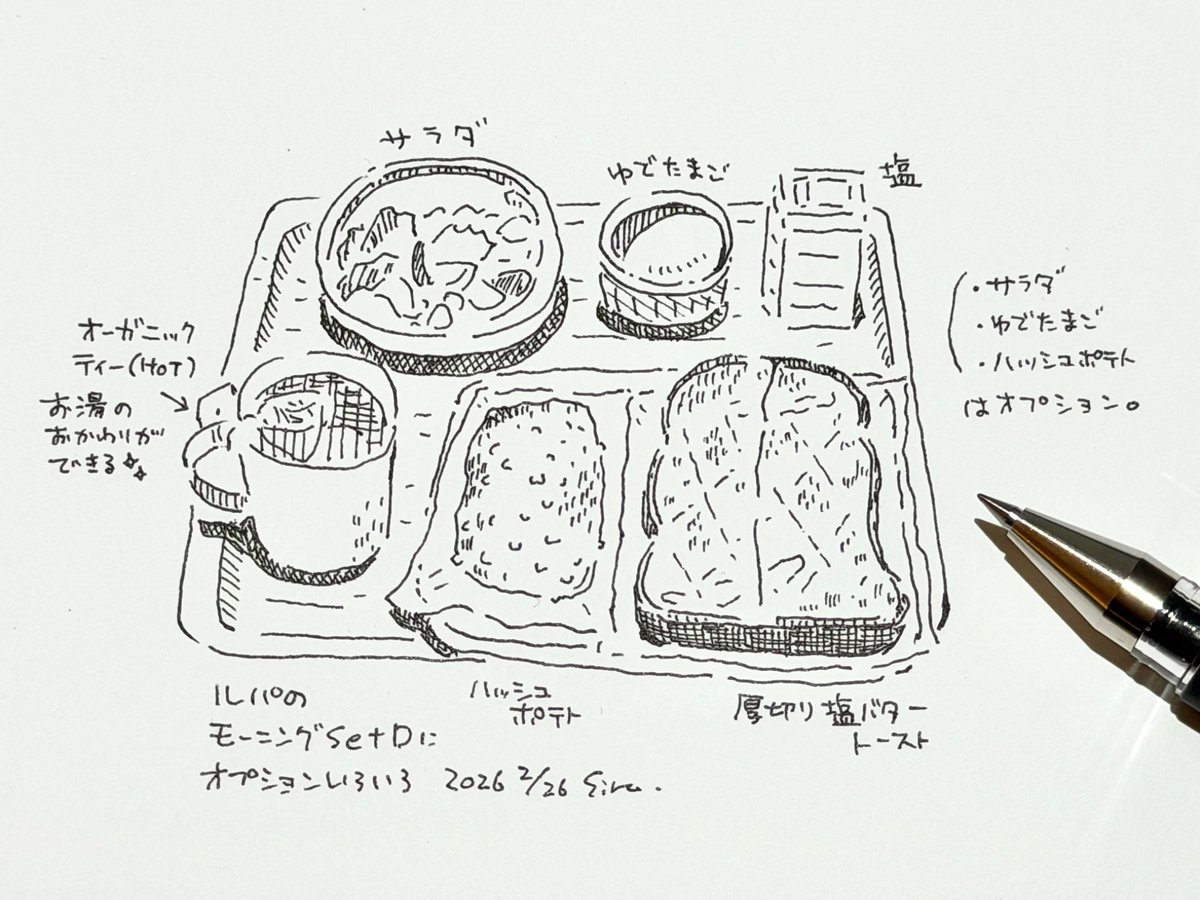 サラダ
ゆでたまご
塩
・サラダ
・ゆでたまご
・ハッシュポテト
はオプション。
オーガニック
ティー(HOT)
お湯の
おかわりが
できる☆
ハッシュ
ポテト
厚切り塩バター
トースト
ルパの
モーニングSetDに
オプションいろいろ 2026 2/26